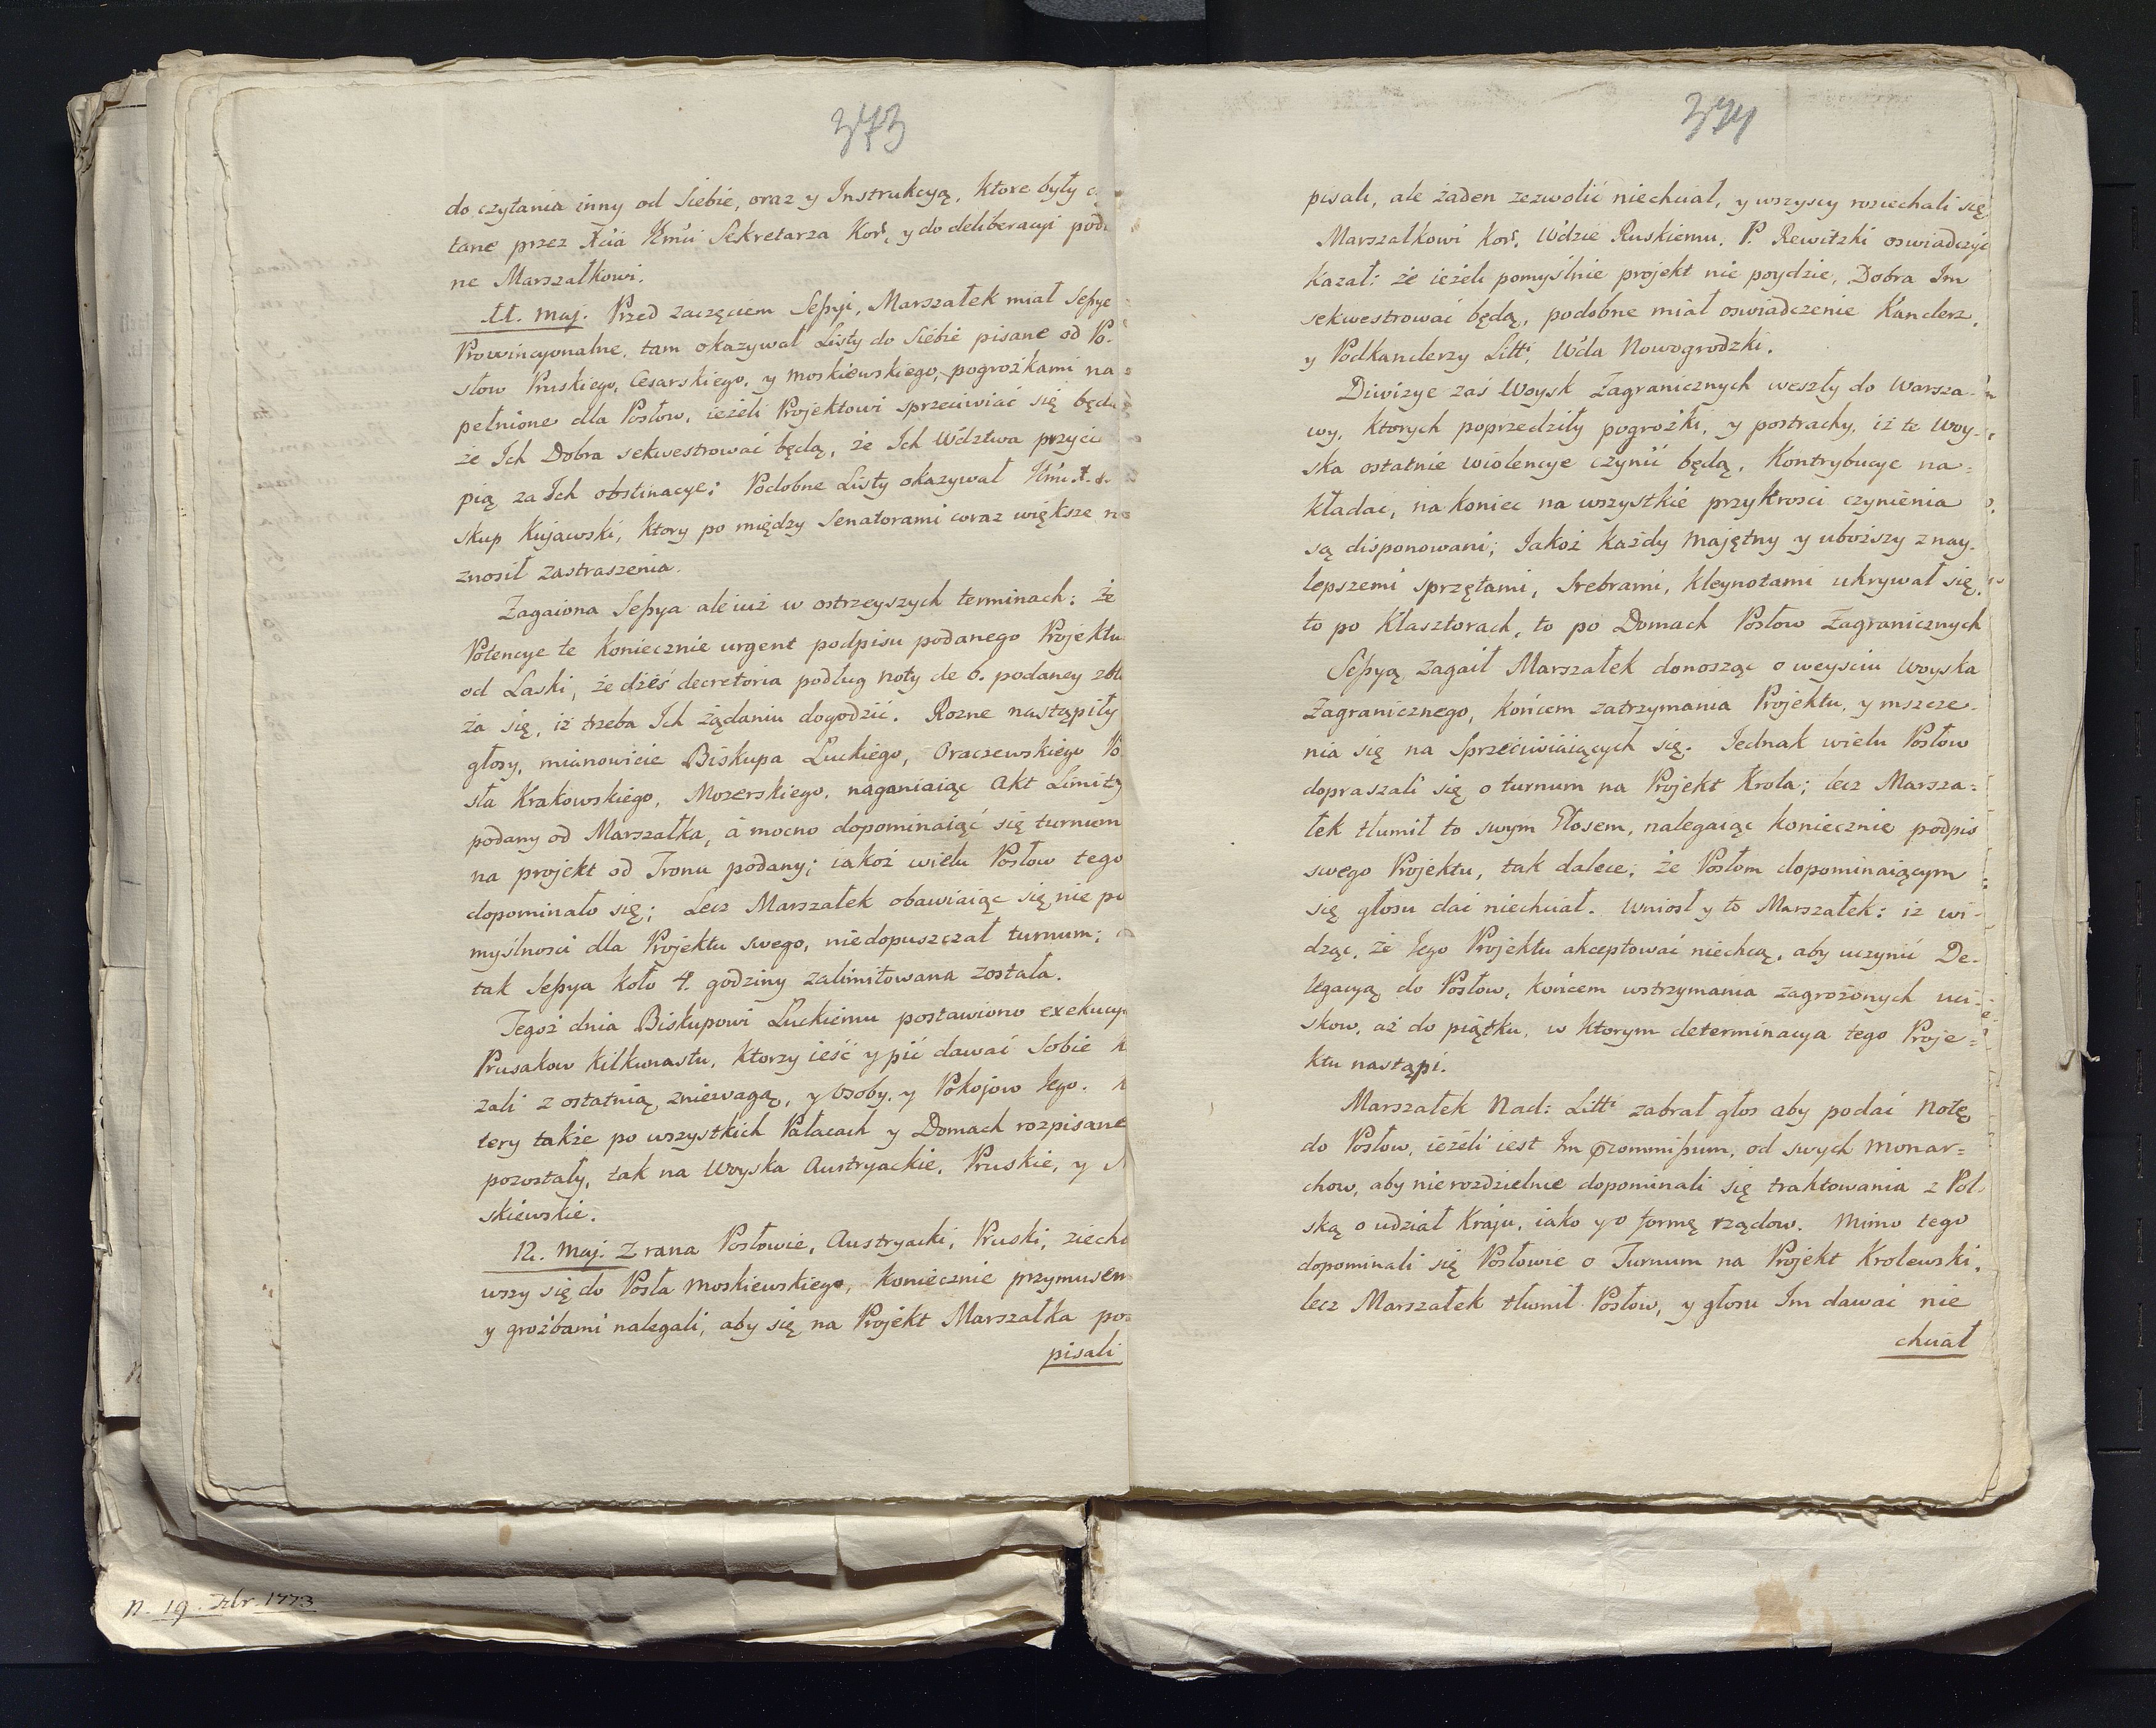 373
do czytania inny od Siebie, oraz y Instrukcyą, ktore były
tane przez Xcia Jmći Sekretarza Kor. y do deliberacyi poda
ne Marszałkowi.
11. Maj. Przed zaczęciem Seßyi, Marszałek miał Seßye
Prowincyonalne, tam okazywał Listy do Siebie pisane od Po-
słow Pruskiego, Cesarskiego, y Moskiewskiego, pogrożkami na
pełnione dla Posłow, ieżeli Projektowi sprzeciwiać się będą
że Ich Dobra sekwestrować będą, że Ich Wdztwa przyci
pią za Ich obstinacye; Podobne Listy okazywał Jmć X.
skup Kujawski, ktory po między Senatorami coraz większe
znosił zastraszenia.
Zagaiona Seßya ale iuż w ostrzeyszych terminach: że
Potencye te koniecznie urgent podpisu podanego Projektu
od Laski, że dziś decretoria podług Noty de 6. podaney zbli
ża się, iż trzeba Ich żądaniu dogodzić. Rozne nastąpiły
głosy, mianowicie Biskupa Luckiego, Oraczewskiego Po
sła Krakowskiego, Mozerskiego, naganiaiąc Akt Limity
podany od Marszałka, a mocno dopominaiąć się turnum
na projekt od Tronu podany; iakoż wielu Posłow tego
dopominało się; Lecz Marszałek obawiaiąc się nie po
myślnosci dla Projektu swego, niedopuszczał turnum;
tak Seßya koło 4. godziny zalimitowana została.
Tegoż dnia Biskupowi Luckiemu postawiono exekucyi
Prusakow kilkunastu, ktorzy ieść y pić dawać Sobie k
zali z ostatnią zniewagą, y Osoby, y Pokojow Jego.
tery także po wszystkich Pałacach y Domach rozpisane
pozostały, tak na Woyska Austryackie, Pruskie, y
skiewskie.
12. Maj. Z rana Posłowie, Austryacki, Pruski, ziecha
wszy się do Posła Moskiewskiego, koniecznie przymusem
y groźbami nalegali, aby się na Projekt Marszałka po
pisali
374
pisali, ale żaden zezwolić niechciał, y wszyscy rosiechali się,
Marszałkowi Kor. Wdzie Ruskiemu, P. Rewitzki oswiadczyć
kazał: że ieżeli pomyślnie projekt nie poydzie, Dobra Im
sekwestrować będą, podobne miał oswiadczenie Kanclerz,
y Podkanclerzy Litti, Wda Nowogrodzki.
Diwizye zaś Woysk Zagranicznych weszły do Warsza-
wy, ktorych poprzedziły pogrożki, y postrachy, iż te Woy-
ska ostatnie wiolencye czynić będą, Kontrybucye na=
kładać, na koniec na wszystkie przykrosci czynienia
są disponowani; Jakoż każdy majętny y uboższy z nay-
lepszemi sprzętami, Srebrami, kleynotami ukrywał się,
to po Klasztorach, to po Domach Posłow Zagranicznych
Seßyą zagaił Marszałek donosząc o weyściu Woyska
Zagranicznego, końcem zatrzymania Projektu, y mszcze-
nia się na Sprzeciwiaiących się. Jednak wielu Posłow
dopraszali się o turnum na Projekt Krola; lecz Marsza=
łek tłumił to swym Głosem, nalegaiąc koniecznie podpis
swego Projektu, tak dalece; że Posłom dopominaiącym
się głosu dać niechciał. Wniosł y to Marszałek: iż wi-
dząc, że Jego Projektu akceptować niechcą, aby uczynić De-
legacyą do Posłow, końcem wstrzymania zagrożonych uci-
skow, aż do piątku, w ktorym determinacya tego Proje=
ktu nastąpi.
Marszałek Nad: Litti zabrał głos aby podać Notę
do Posłow, ieżeli iest Im commißum, od swych Monar=
chow, aby nierozdzielnie dopominali się traktowania z Pol-
ską o udział Kraju, iako y o formę rządow. Mimo tego
dopominali się Posłowie o Turnum na Projekt Krolewski,
lecz Marszałek tłumił Posłow, y głosu Im dawać nie
chciał
N. 19. Xbr. 1773